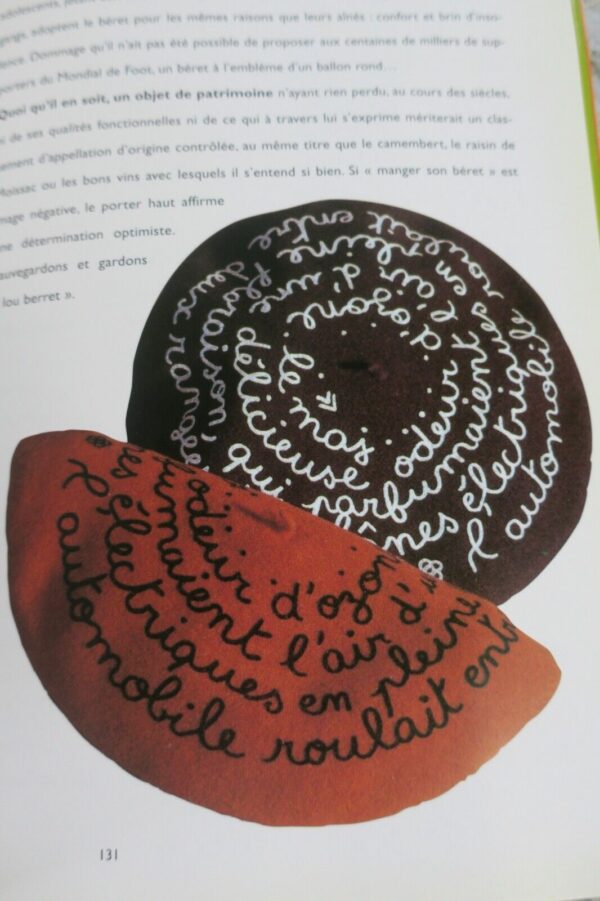 adolescents,
adoptent le béret pour les mêmes raisons que leurs aînés : confort et brin d'inso-
lence. Dommage qu'il n'ait pas été possible de proposer aux centaines de milliers de sup-
porters du Mondial de Foot, un béret à l'emblème d'un ballon rond...
Quoi qu'il en soit, un objet de patrimoine n'ayant rien perdu, au cours des siècles,
de ses qualités fonctionnelles ni de ce qui à travers lui s'exprime mériterait un clas-
sement d'appellation d'origine contrôlée, au même titre que le camembert, le raisin de
Moissac ou les bons vins avec lesquels il s'entend si bien. Si « manger son béret » est
mage négative, le porter haut affirme
ne détermination optimiste.
auvegardons et gardons
lou berret ».
l'automobile
roulait entre
deux
électriques en pleine
floraison,
qui parfumaient l'air d'une
délicieuse odeur
d'ozone
le mas
odeur d'ozon
umaient l'air d'u
es électriques en pleine
l'automobile roulait entr
131